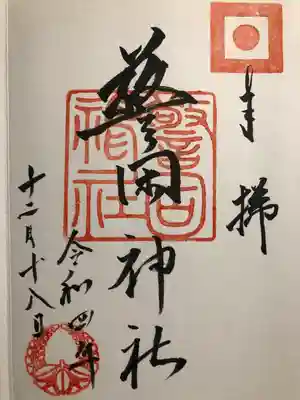 奉拝
警固神社
警固
神社
令和四年
十二月十八日